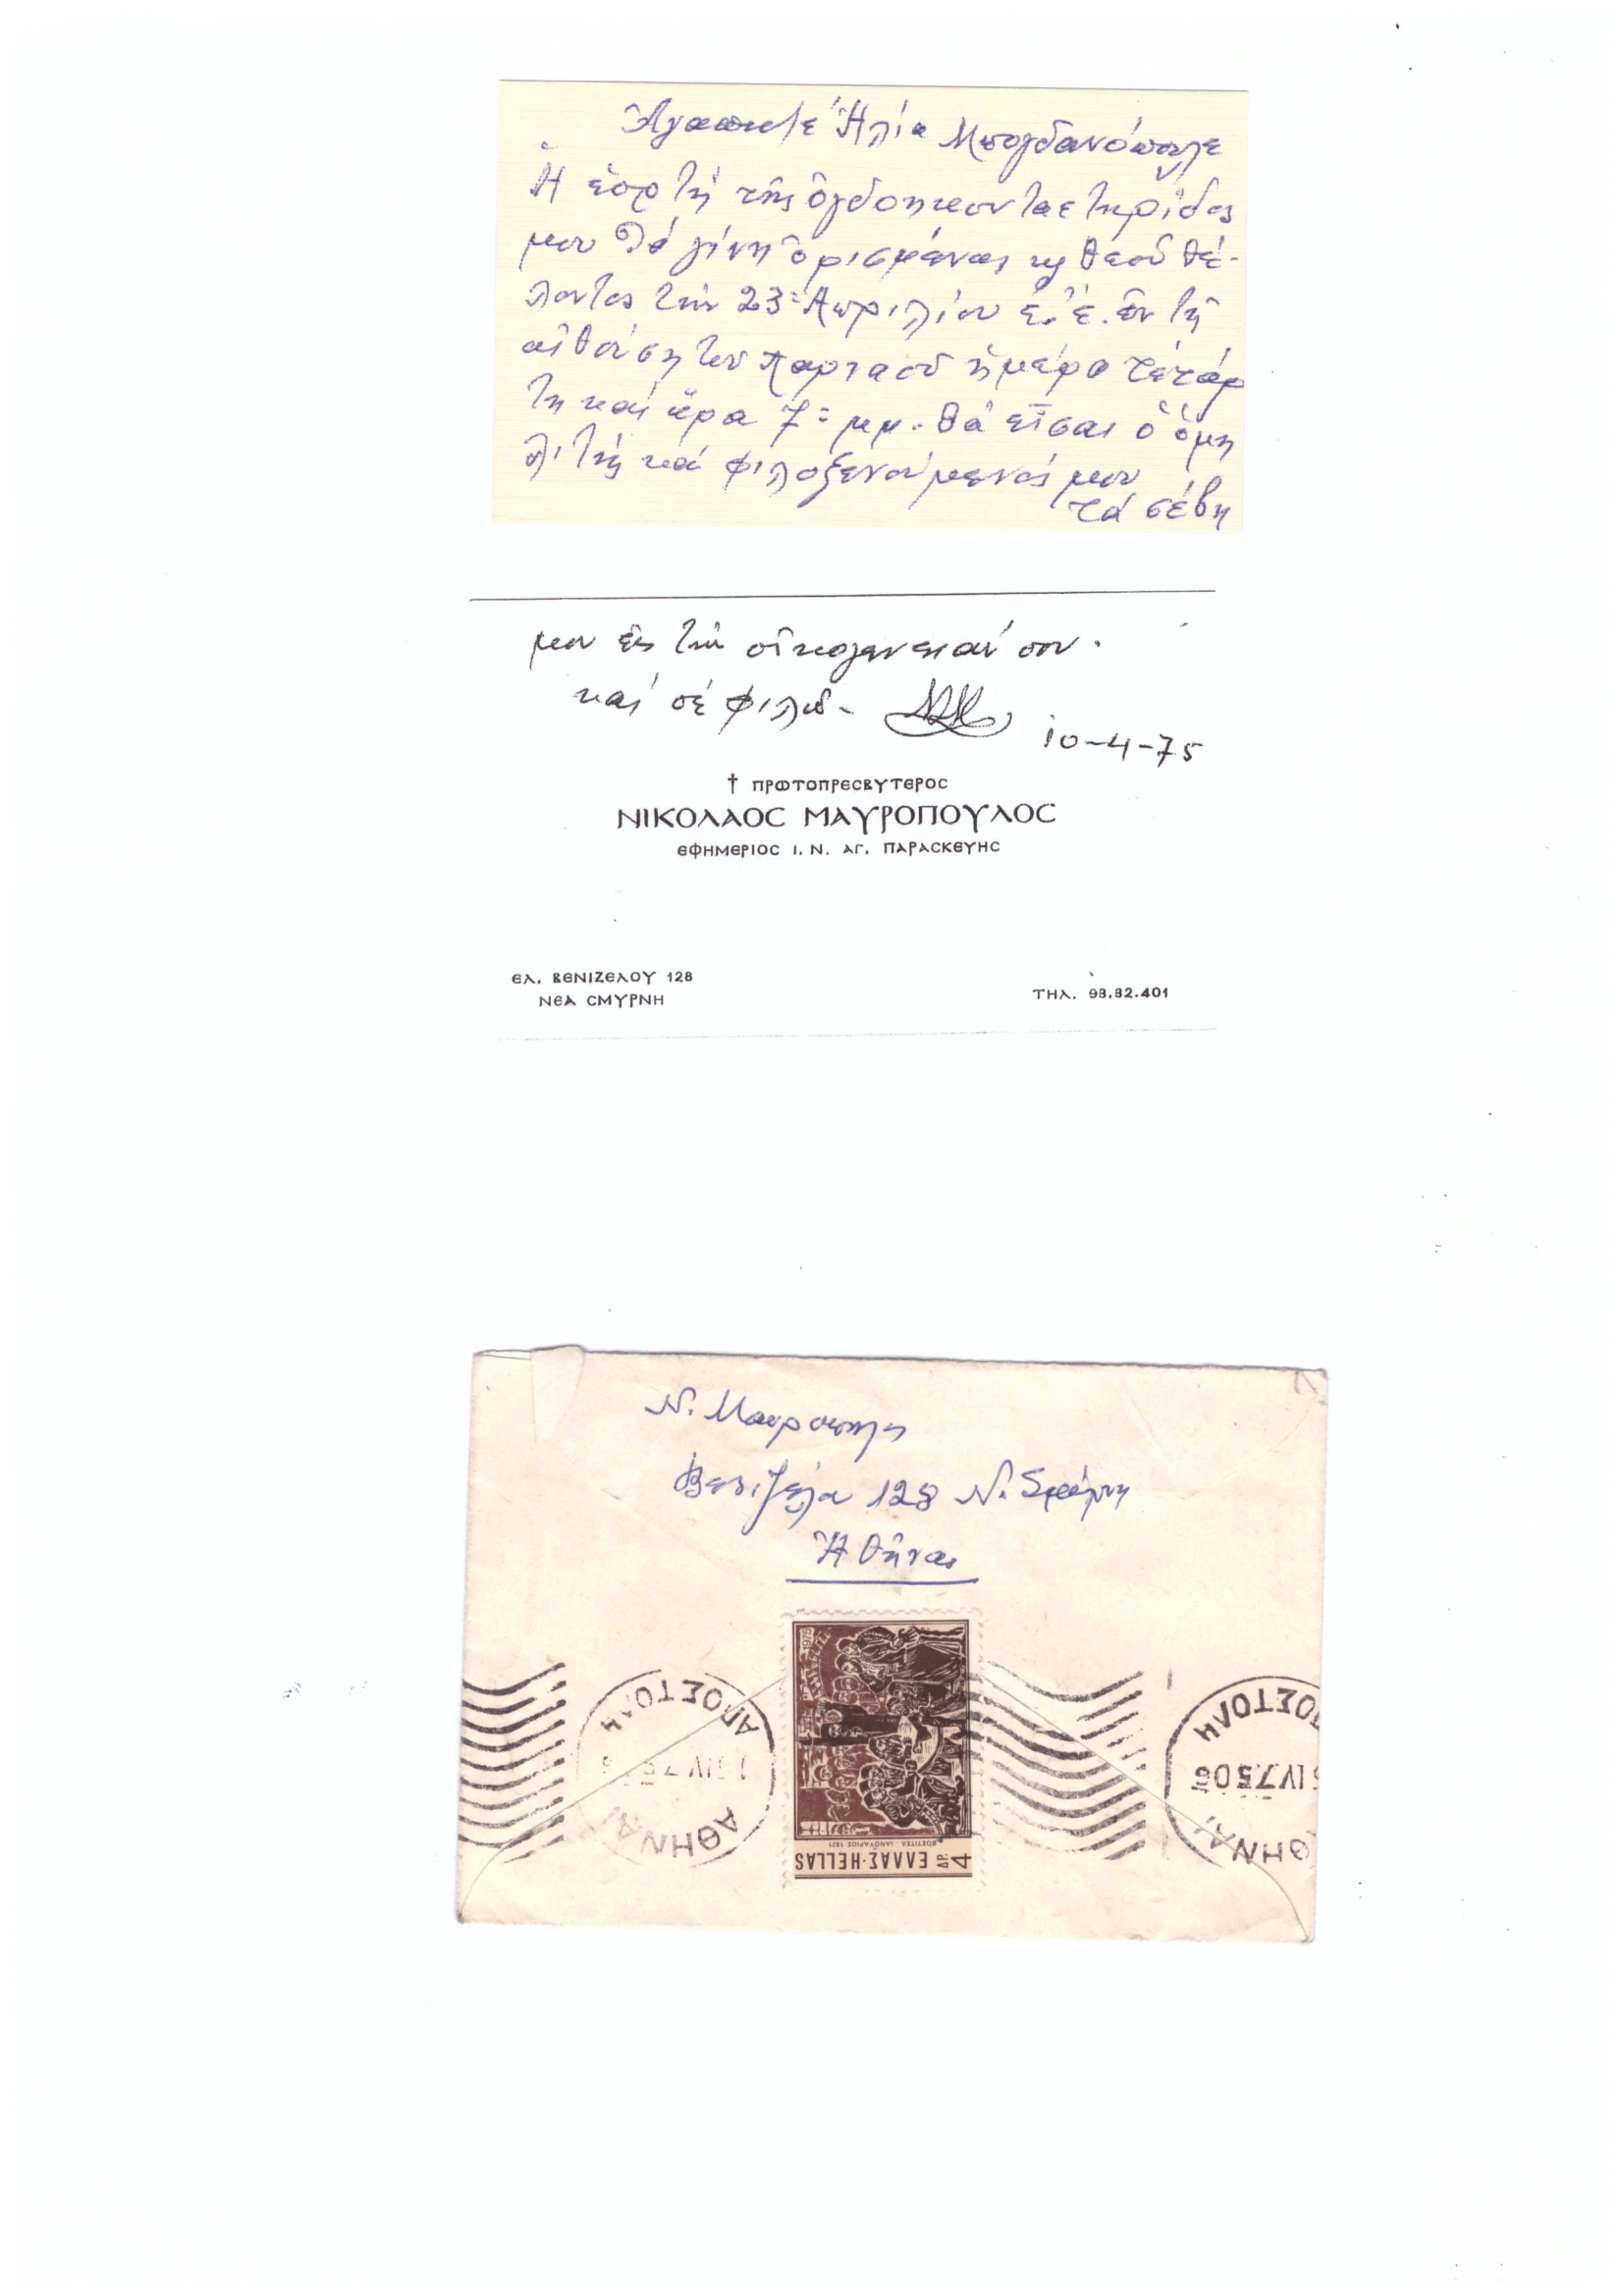 Ἀγαπητέ Ἠλία Μπογδανόπουλε
Ἡ ἑορτή τῆς ὀγδοηκονταετηρίδος
μου θά γίνη ὁρισμένως καί Θεοῦ θέ-
λοντος τήν 23ην Ἀπριλίου ἐ.ἔ. ἐν τῇ
αἰθούσῃ τοῦ Παρνασσοῦ ἡμέρα τετάρ
τη καί ὥρα 7η μμ. θά εἶσαι ὁ ὁμη
λιτής καί φιλοξενούμενός μου
τά σέβη
μου εἰς τήν οἰκογένειάν σου.
καί σέ φιλῶ-
10-4-75
† ΠΡΩΤΟΠΡΕСΒΥΤΕΡΟС
ΝΙΚΟΛΑΟС ΜΑΥΡΟΠΟΥΛΟС
ΕΦΗΜΕΡΙΟС Ι. Ν. ΑΓ. ΠΑΡΑСΚΕΥΗС
ΕΛ. ΒΕΝΙΖΕΛΟΥ 128
ΝΕΑ СΜΥΡΝΗ
ΤΗΛ. 93.32.401
Ν. Μαυρόπουλος
Βενιζέλου 128 Ν. Σμύρνη
Ἀθήνας
ΑΠΟΣΤΟΛΗ
ΑΘΗΝΑΙ
ΠΟΣΤΟΛΗ
IV.75.06
ΘΗΝΑΙ
ΒΟΣΤΙΤΣΑ - ΙΑΝΟΥΑΡΙΟΣ 1821
4 ΔΡ. ΕΛΛΑΣ-HELLAS